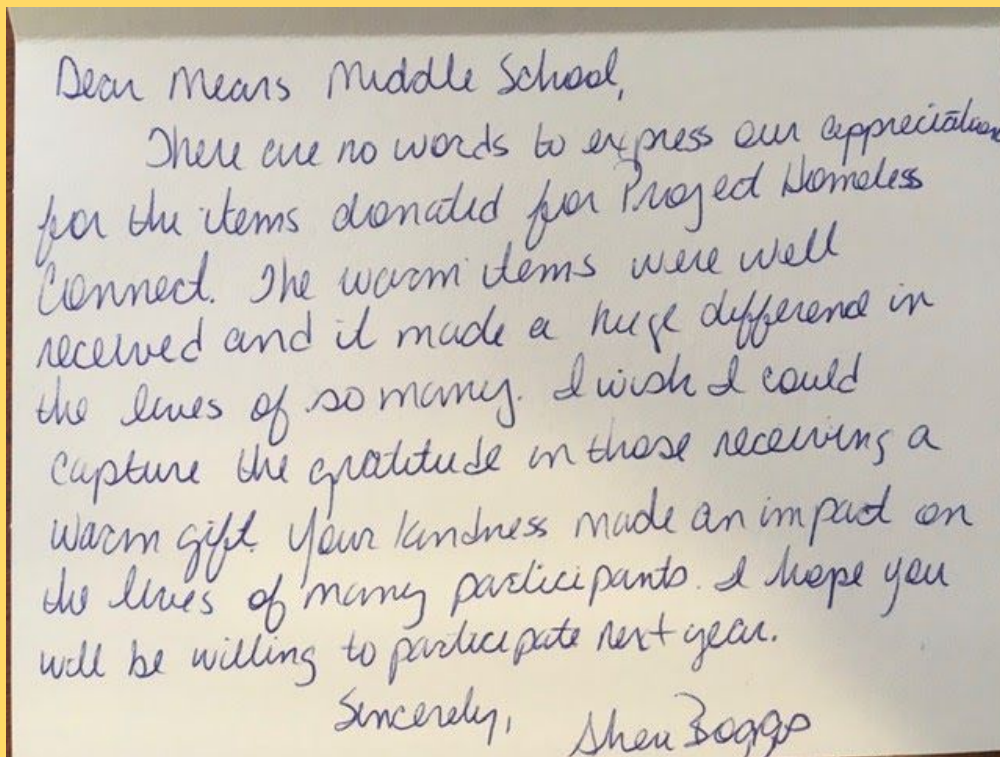 Dear Means Middle School,
There are no words to express our appreciation
for the items donated for Project Homeless
Connect. The warm items were well
received and it made a huge difference in
the lives of so many. I wish I could
capture the gratitude in those receiving a
warm gift. Your kindness made an impact on
the lives of many participants. I hope you
will be willing to participate next year.
Sincerely,
Boggs